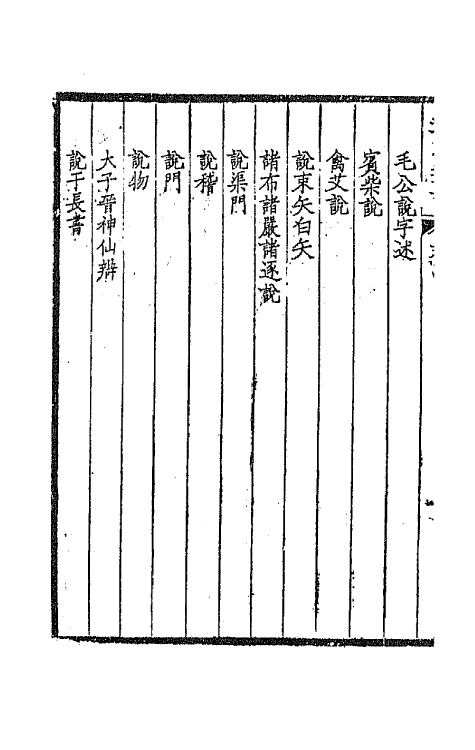 毛公說字述
賓柴說
禽艾說
說束矢白矢
諸布諸嚴諸逐說
說渠門
說稽
說門
說物
大子晉神仙辨
說于長書